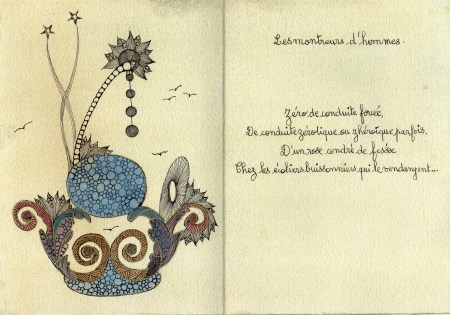 Les montreurs d'hommes.
Zéro de conduite forcé,
De conduite zérotique ou zhéroïque parfois,
D'un rose cendré de fessée
Chez les écoliers buissonniers qui le vendangent...